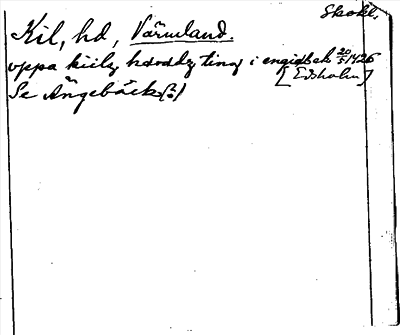 Skokl.
Kil, hd, Värmland.
oppa kiilz häradz ting i engidbek 20/5 1426
[Edsholm]
Se Ängebäck(?)